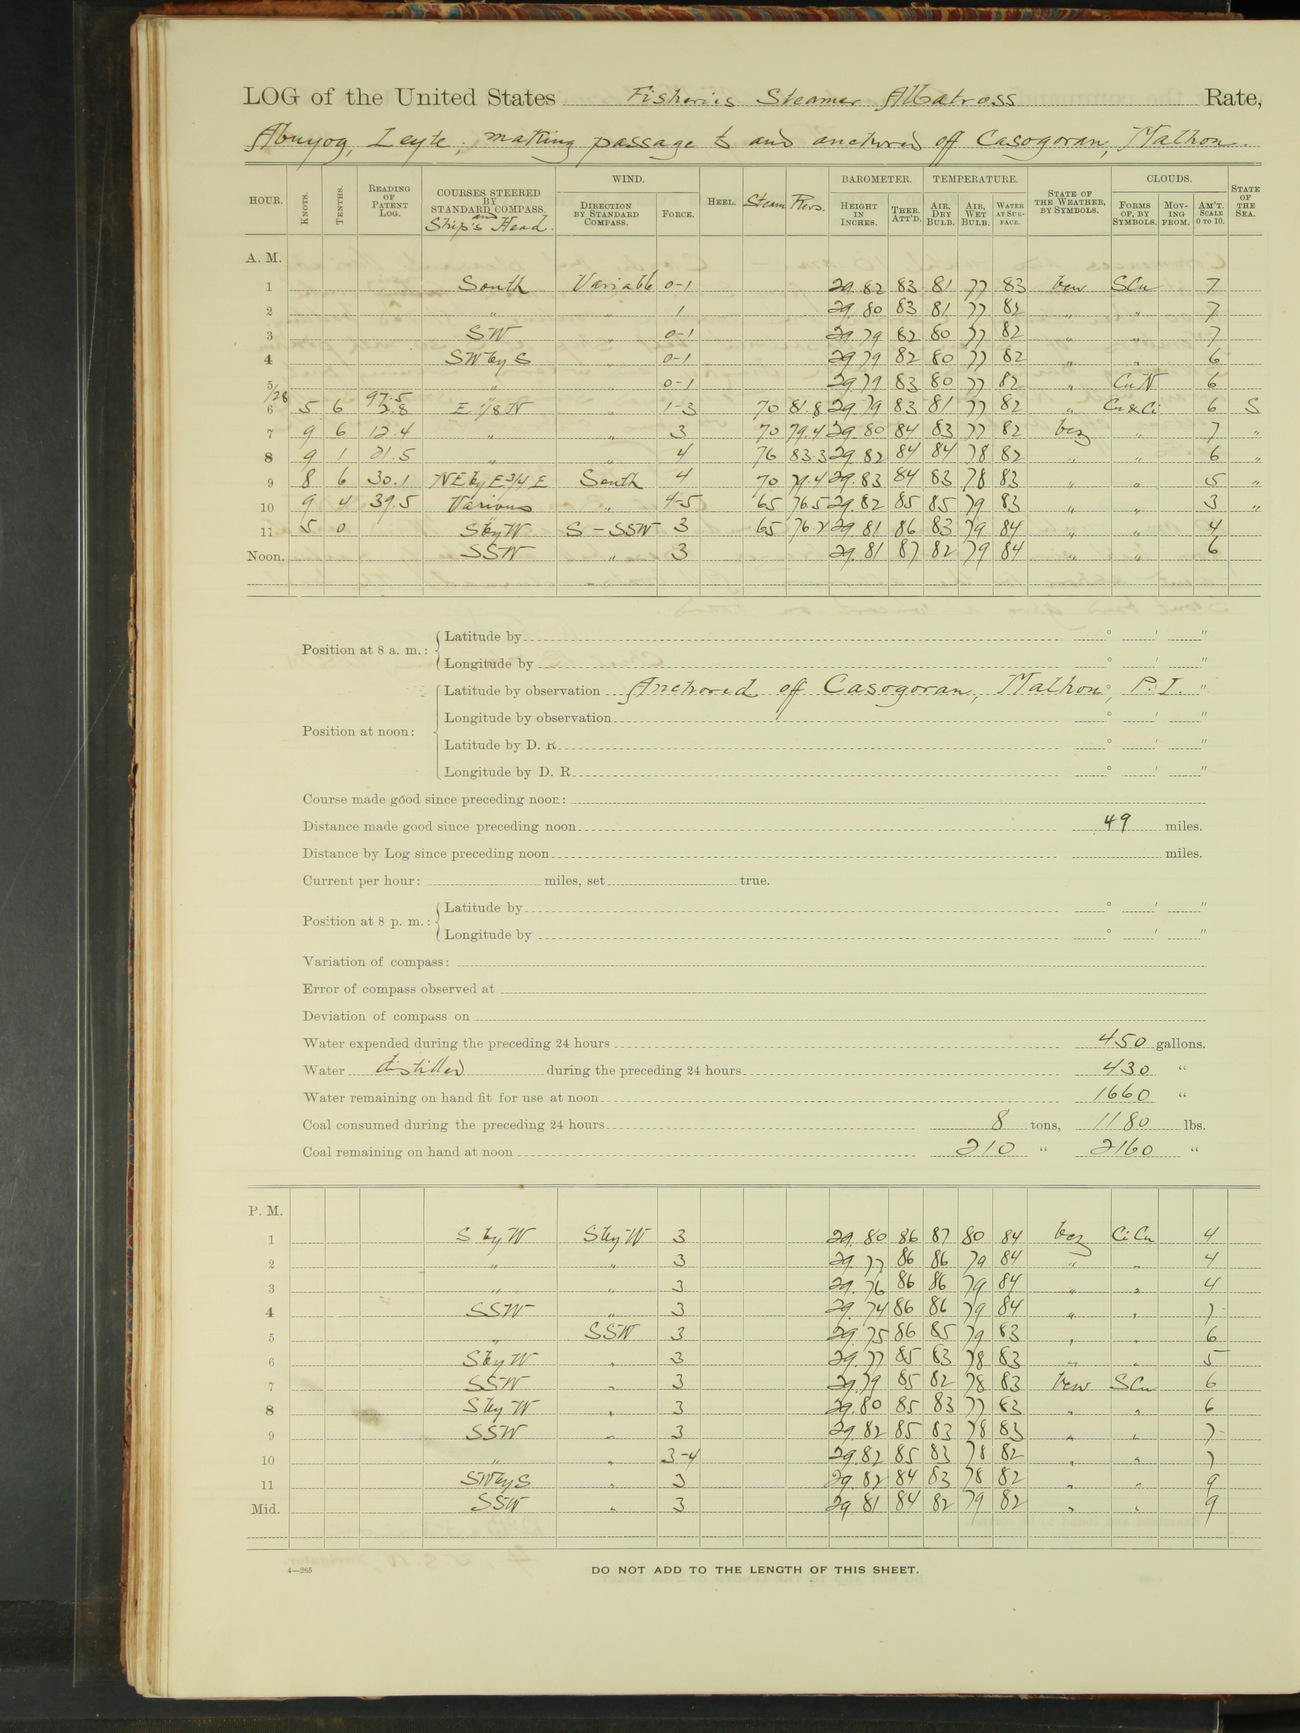 LOG of the United States Fisheries Steamer Albatross Rate,
Abuyog, Leyte, making passage to and anchored off Casogoran, Malhon.
HOUR. KNOTS. TENTHS. READING OF PATENT LOG. COURSES STEERED BY STANDARD COMPASS. and Ship's Head. WIND. DIRECTION BY STANDARD COMPASS. FORCE. HEEL. Steam Revs. BAROMETER. HEIGHT IN INCHES. THER. ATT'D. TEMPERATURE. AIR, DRY BULB. AIR, WET BULB. WATER AT SURFACE. STATE OF THE WEATHER, BY SYMBOLS. CLOUDS. FORMS OF, BY SYMBOLS. MOVING FROM. AM'T. SCALE 0 TO 10. STATE OF THE SEA.
A. M.
1 South Variable 0-1 29.82 83 81 77 83 bcw SCu 7
2 " " 1 29.80 83 81 77 82 " " 7
3 SW " 0-1 29.79 82 80 77 82 " " 7
4 SW by S " 0-1 29.79 82 80 77 82 " " 6
5 " " 0-1 29.79 83 80 77 82 " CuN 6
/28 97.5
6 5 6 2.8 E 1/8 N " 1-3 70 81.8 29.79 83 81 77 82 " Cu & Ci 6 S
7 9 6 12.4 " " 3 70 79.4 29.80 84 83 77 82 bcz " 7 "
8 9 1 21.5 " " 4 76 83.3 29.82 84 84 78 82 " " 6 "
9 8 6 30.1 NE by E 3/4 E South 4 70 79.4 29.83 84 83 78 83 " " 5 "
10 9 4 39.5 Various " 4-5 65 76.5 29.82 85 85 79 83 " " 3 "
11 5 0 S by W S - SSW 3 65 76.2 29.81 86 83 79 84 " " 4
Noon. SSW " 3 29.81 87 82 79 84 " " 6
Position at 8 a. m.: Latitude by ° ' "
Longitude by ° ' "
Position at noon: Latitude by observation Anchored off Casogoran, Malhon, P. I. "
Longitude by observation ° ' "
Latitude by D. R. ° ' "
Longitude by D. R. ° ' "
Course made good since preceding noon:
Distance made good since preceding noon 49 miles.
Distance by Log since preceding noon miles.
Current per hour: miles, set true.
Position at 8 p. m.: Latitude by ° ' "
Longitude by ° ' "
Variation of compass:
Error of compass observed at
Deviation of compass on
Water expended during the preceding 24 hours 450 gallons.
Water distilled during the preceding 24 hours 430 "
Water remaining on hand fit for use at noon 1660 "
Coal consumed during the preceding 24 hours 8 tons, 1180 lbs.
Coal remaining on hand at noon 210 " 2160 "
P. M.
1 S by W S by W 3 29.80 86 87 80 84 bcz CiCu 4
2 " " 3 29.77 86 86 79 84 " " 4
3 " " 3 29.76 86 86 79 84 " " 4
4 SSW " 3 29.74 86 86 79 84 " " 7
5 " SSW 3 29.75 86 85 79 83 " " 6
6 S by W " 3 29.77 85 83 78 83 " " 5
7 SSW " 3 29.79 85 82 78 83 bcw SCu 6
8 S by W " 3 29.80 85 83 77 83 " " 6
9 SSW " 3 29.82 85 83 78 83 " " 7
10 " " 3-4 29.82 85 83 78 82 " " 7
11 SW by S " 3 29.82 84 83 78 82 " " 9
Mid. SSW " 3 29.81 84 82 79 82 " " 9
4—265 DO NOT ADD TO THE LENGTH OF THIS SHEET.